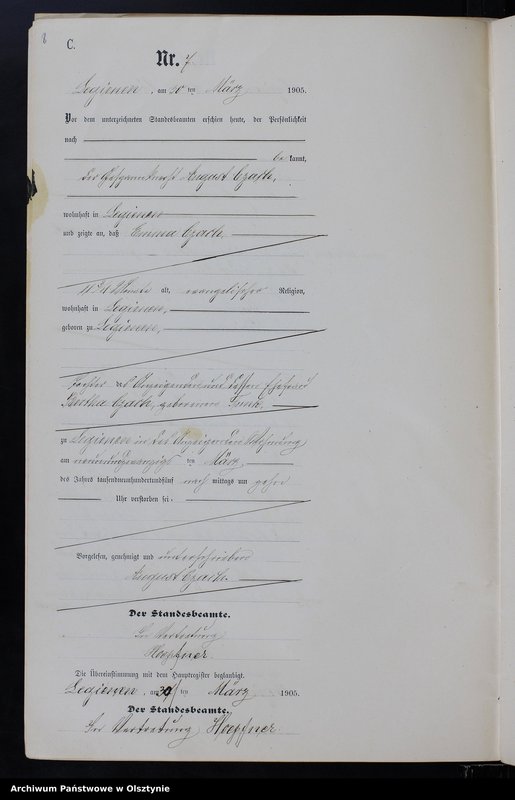 8
C.
Nr. 7
Legienen, am 30 ten März 1905.
Vor dem unterzeichneten Standesbeamten erschien heute, der Persönlichkeit
nach
be kannt,
der August Czach,
wohnhaft in Legienen
und zeigte an, daß Emma Czach
alt, evangelischer Religion,
wohnhaft in Legienen,
geboren zu Legienen,
Tochter des Anzeigenden und dessen Ehefrau
Bertha Czach, geborenen
zu Legienen in des Anzeigenden Wohnung
am neunundzwanzigsten ten März
des Jahres tausendneunhundertundfünf nach mittags um zehn
Uhr verstorben sei.
Vorgelesen, genehmigt und unterschrieben
August Czach
Der Standesbeamte.
In Vertretung
Hoepfner
Die Übereinstimmung mit dem Hauptregister beglaubigt.
Legienen, am 30 ten März 1905.
Der Standesbeamte.
In Vertretung Hoepfner
Archiwum Państwowe w Olsztynie